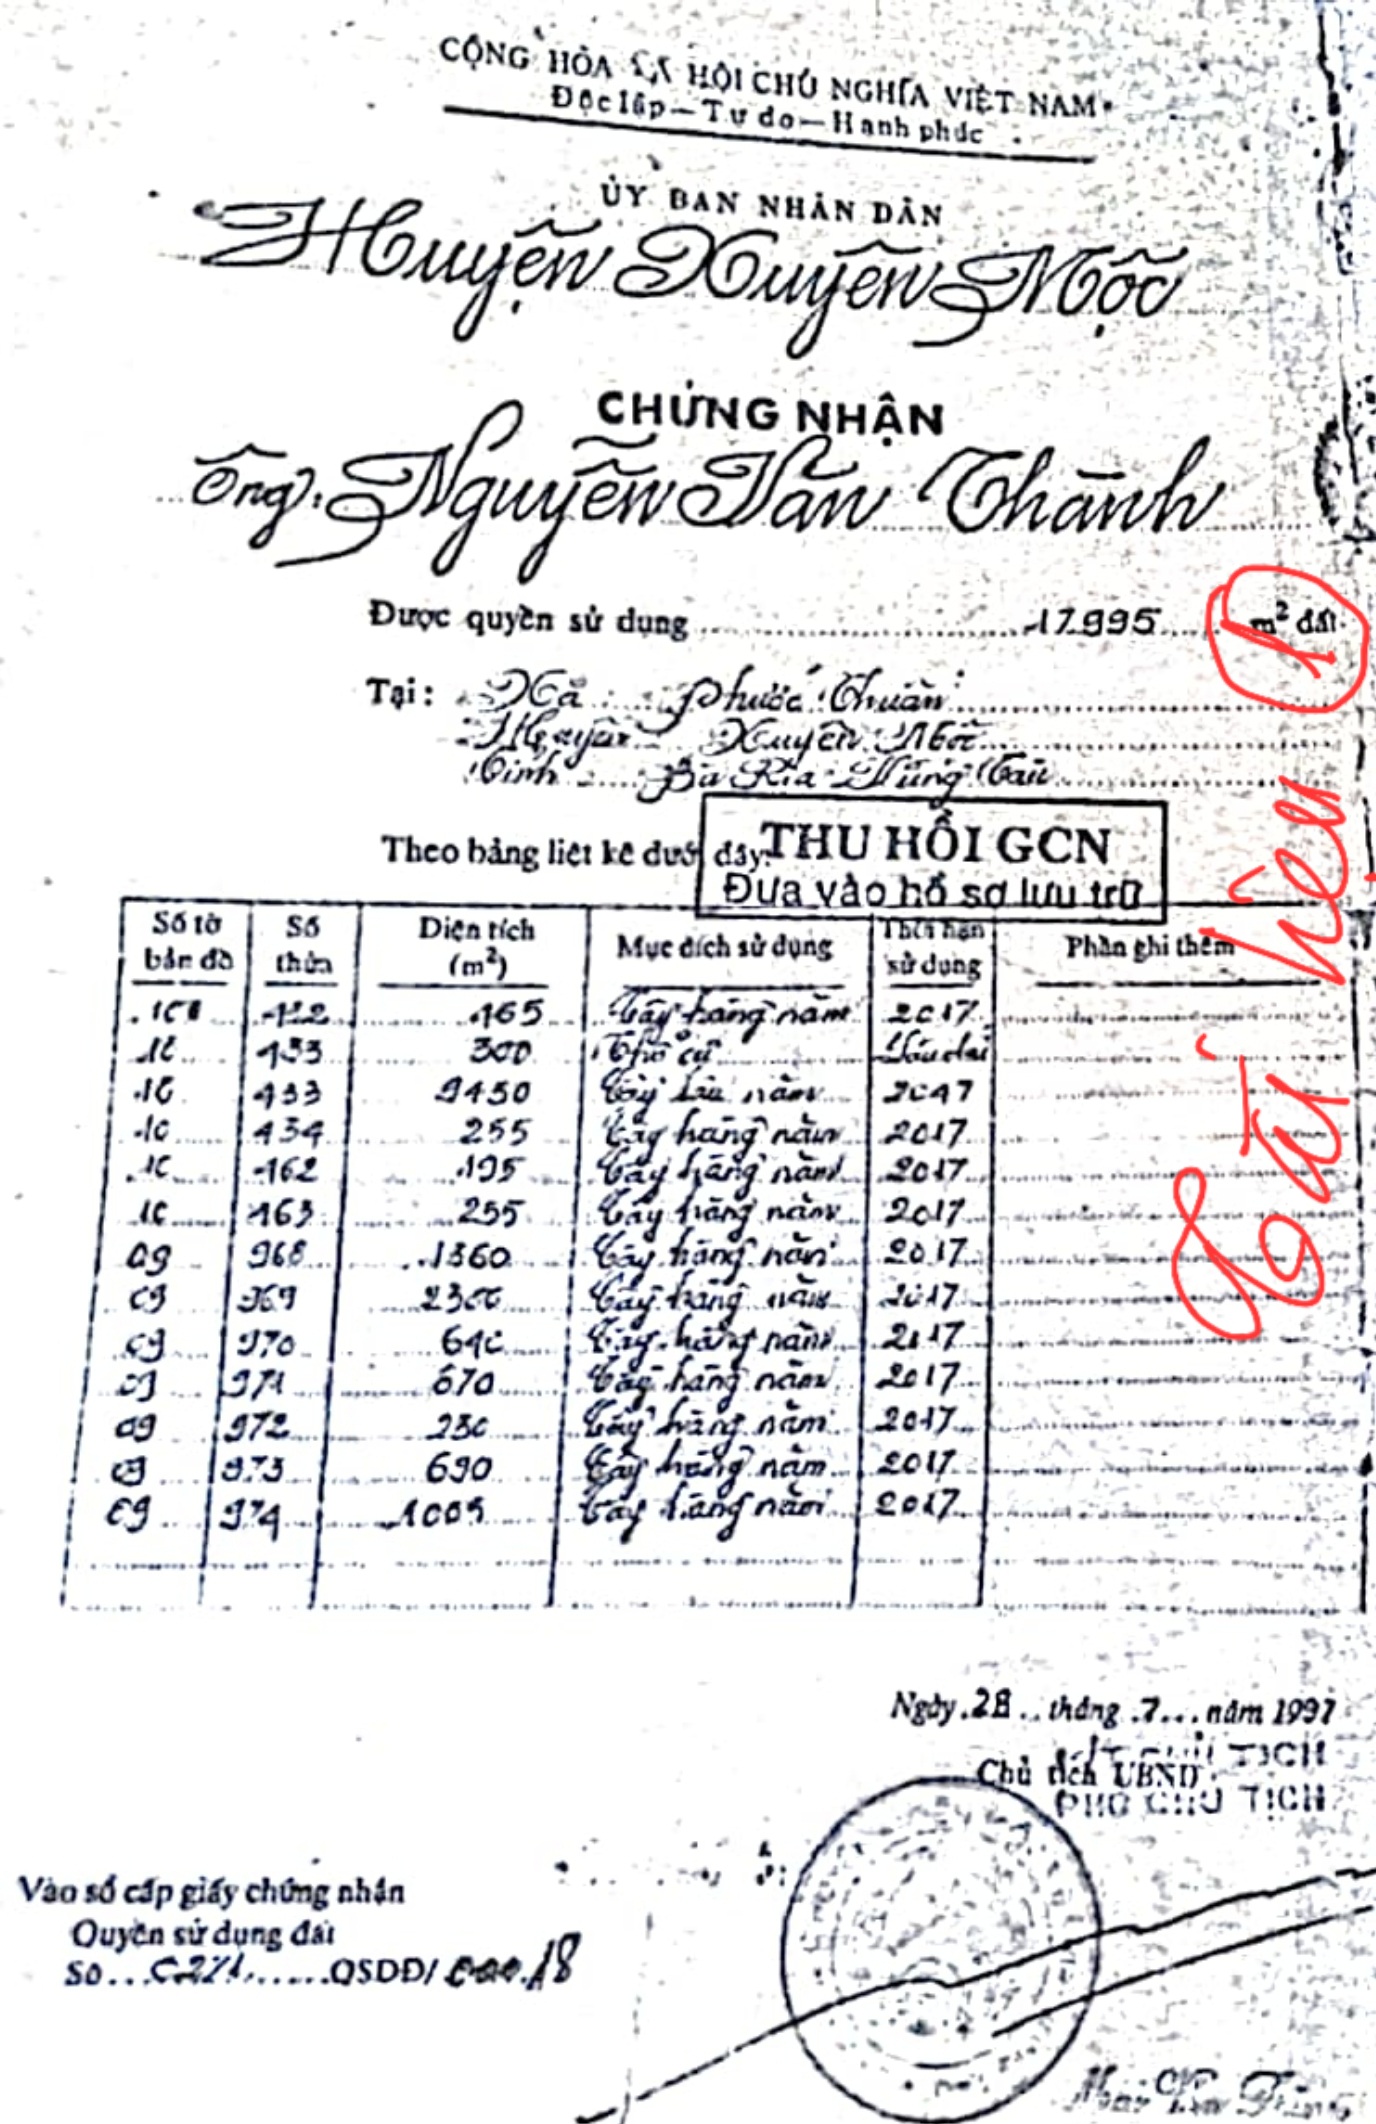 CỘNG HÒA XÃ HỘI CHỦ NGHĨA VIỆT NAM
Độc lập — Tự do — Hạnh phúc
ỦY BAN NHÂN DÂN
Huyện Xuyên Mộc
CHỨNG NHẬN
Ông: Nguyễn Văn Thành
Được quyền sử dụng 17995 m² đất
1
Tại: Xã Phước Thuận
Huyện Xuyên Mộc
Tỉnh Bà Rịa Vũng Tàu
Theo bảng liệt kê dưới đây:
THU HỒI GCN
Đưa vào hồ sơ lưu trữ
Số tờ bản đồ Số thửa Diện tích (m²) Mục đích sử dụng Thời hạn sử dụng Phần ghi thêm
165 Cây hàng năm 2017
10 433 300 Thổ cư Lâu dài
10 433 9450 Cây lâu năm 2047
10 434 255 Cây hàng năm 2017
10 462 195 Cây hàng năm 2017
10 463 255 Cây hàng năm 2017
09 968 1360 Cây hàng năm 2017
09 969 2300 Cây hàng năm 2017
09 970 640 Cây hàng năm 2017
09 971 670 Cây hàng năm 2017
09 972 230 Cây hàng năm 2017
09 973 690 Cây hàng năm 2017
09 974 Cây hàng năm 2017
Tài liệu
Ngày 28 tháng 7 năm 1997
Chủ tịch UBND
KT CHỦ TỊCH
PHÓ CHỦ TỊCH
Vào sổ cấp giấy chứng nhận
Quyền sử dụng đất
Số QSDĐ/